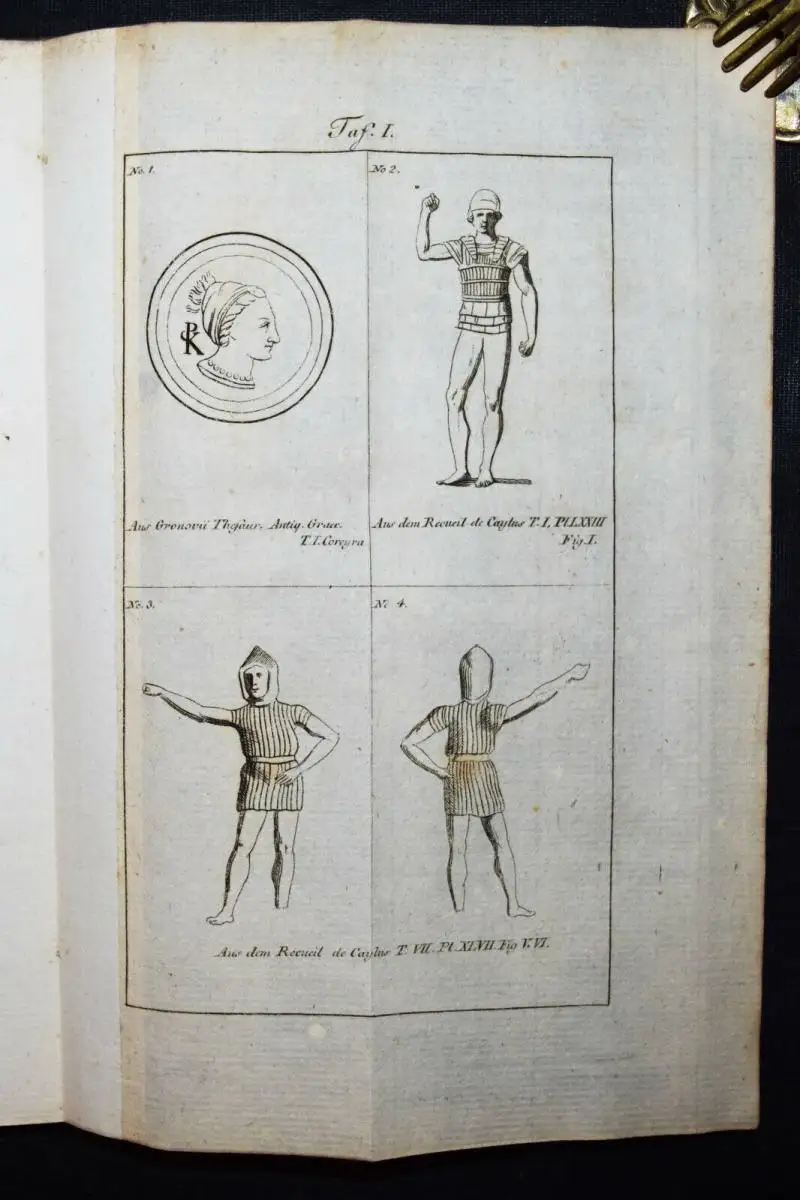 Taf. I.
No. 1.
No 2.
PK
Aus Gronovii Thesaur. Antiq. Graec.
T. I. Corcyra
Aus dem Recueil de Caylus T. I, Pl. LXXIII
Fig. I.
No. 3.
No 4.
Aus dem Recueil de Caylus T. VII. Pl. XLVII. Fig V. VI.